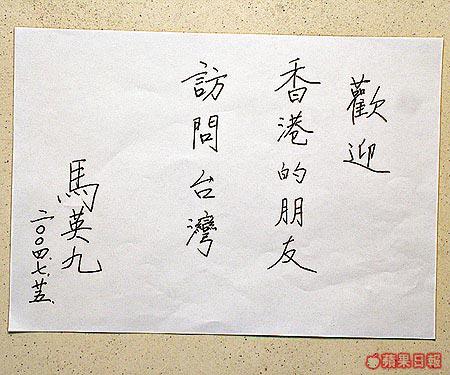 歡迎
香港的朋友
訪問台灣
馬英九
二〇〇四.七.廿五.
蘋果日報